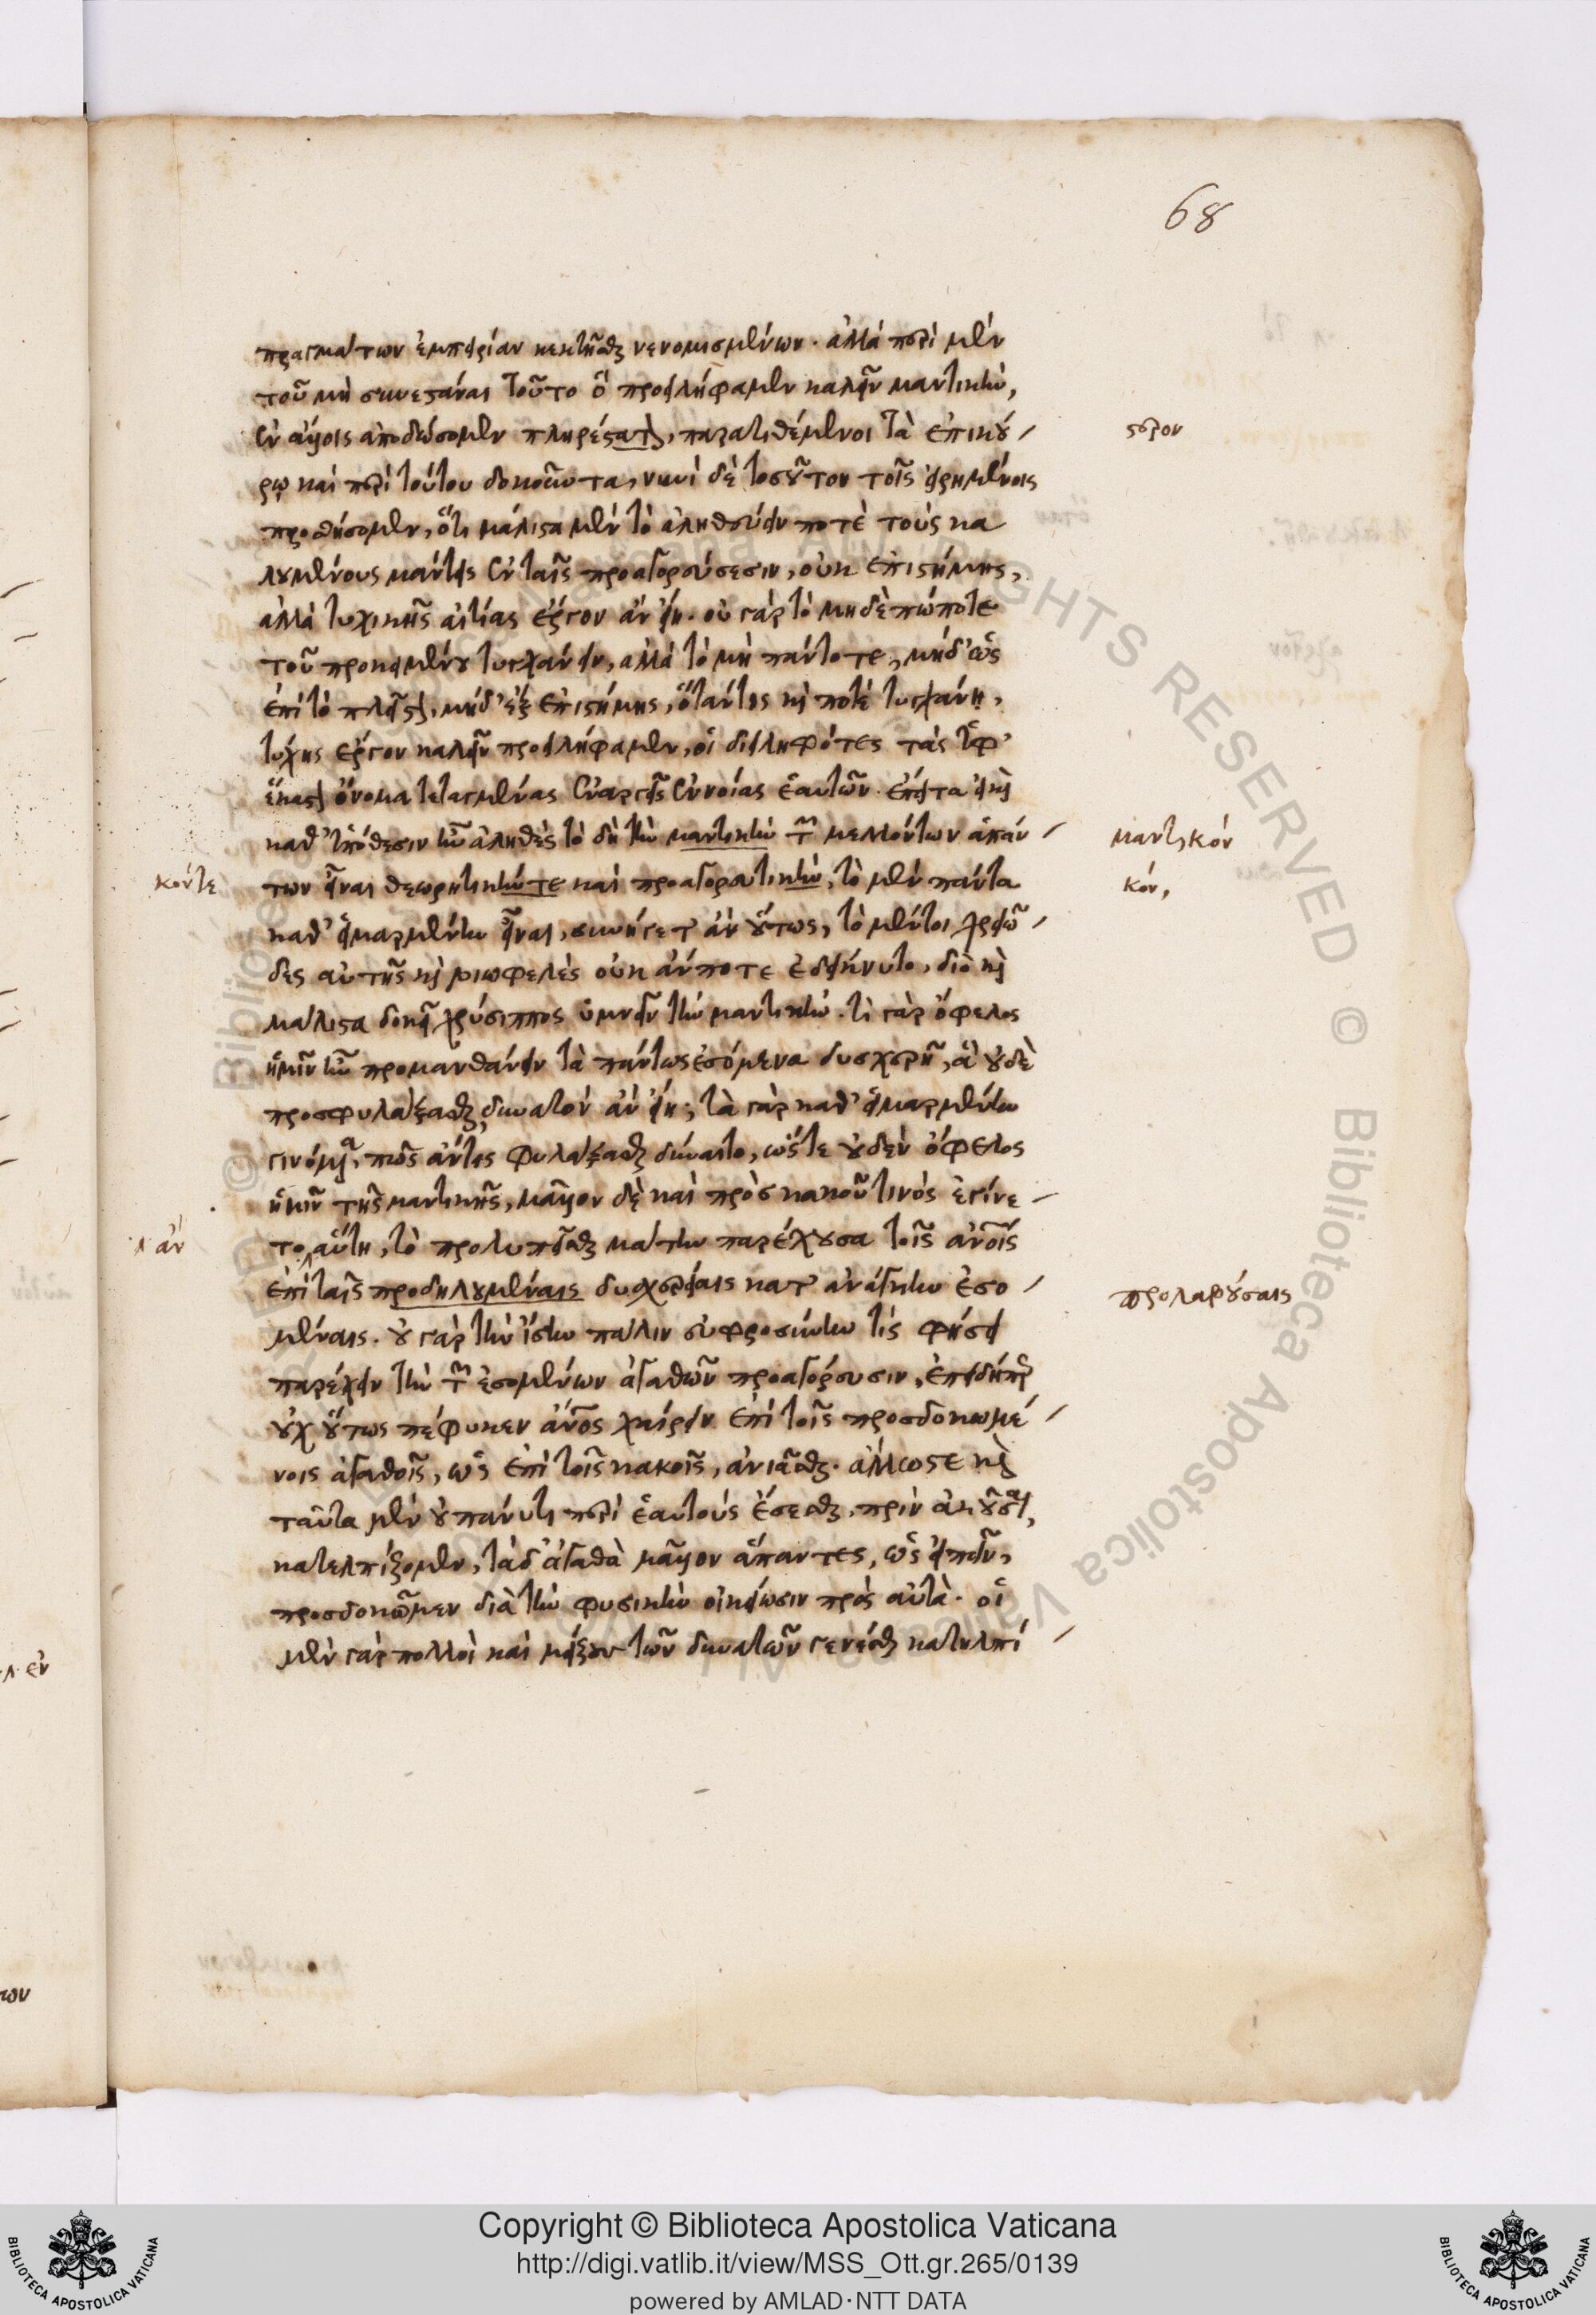 68
πραγμάτων ἐμπειρίαν κεκτῆσθαι νενομισμένων. ἀλλὰ περὶ μὲν
τοῦ μὴ συνεστάναι τοῦτο ὃ προειλήφαμεν καλεῖν μαντικὴν,
ἐν ἄλλοις ἀποδώσομεν πληρέστατα, παρατιθέμενοι τὰ ἐπικού
στερον
ρῳ καὶ περὶ τούτου δοκοῦντα, νυνὶ δὲ τοσοῦτον τοῖς εἰρημένοις
προσθήσομεν, ὅτι μάλιστα μὲν τὸ ἀληθεύειν ποτὲ τοὺς κα
λουμένους μάντεις ἐν ταῖς προαγορεύσεσιν, οὐκ ἐπιστήμης,
ἀλλὰ τυχικῆς αἰτίας ἔργον ἂν εἴη. οὐ γὰρ τὸ μηδὲ πώποτε
τοῦ προκειμένου τυγχάνειν, ἀλλὰ τὸ μὴ πάντοτε, μήδ' ὡς
ἐπὶ τὸ πλεῖστον, μήδ' ἐξ ἐπιστήμης, ὅτάν τις καὶ ποτὲ τυγχάνῃ,
τύχης ἔργον καλεῖν προειλήφαμεν, οἱ διειληφότες τὰς ὑφ'
ἕκαστον ὄνομα τεταγμένας ἐναργεῖς ἐννοίας ἑαυτῶν. ἔπειτα εἰ καὶ
καθ' ὑπόθεσιν ἦν ἀληθὲς τὸ δὴ τὴν μαντικὴν τῶν μελλόντων ἁπάν
μαντικὸν
κόν τε
των εἶναι θεωρητικήν τε καὶ προαγορευτικὴν, τὸ μὲν πάντα
κόν,
καθ' εἱμαρμένην εἶναι, συνήγετ' ἂν οὕτως, τὸ μέντοι χρειῶ
δες αὐτῆς καὶ βιωφελὲς οὐκ ἄν ποτε ἐδείκνυτο, διὸ καὶ
μάλιστα δοκεῖ χρύσιππος ὑμνεῖν τὴν μαντικήν. τί γὰρ ὄφελος
ἡμῖν ἦν προμανθάνειν τὰ πάντως ἐσόμενα δυσχερῆ, ἃ οὐδὲ
προσφυλάξασθαι δυνατὸν ἂν εἴη; τὰ γὰρ καθ' εἱμαρμένην
γινόμενα, πῶς ἄν τις φυλάξασθαι δύναιτο, ὥστε οὐδὲν ὄφελος
ἡμῖν τῆς μαντικῆς, μᾶλλον δὲ καὶ πρὸς κακοῦ τινὸς ἐγίνε
λ ἂν
το αὕτη, τὸ προλυπεῖσθαι μάτην παρέχουσα τοῖς ἀνοῖς
ἐπὶ ταῖς προδηλουμέναις δυσχερείαις κατ' ἀνάγκην ἐσο
προλαβούσαις
μέναις. οὐ γὰρ τὴν ἴσην πάλιν εὐφροσύνην τὶς φήσει
παρέχειν τὴν τῶν ἐσομένων ἀγαθῶν προαγόρευσιν, ἐπειδήπερ
οὐχ οὕτως πέφυκεν ἄνος χαίρειν ἐπὶ τοῖς προσδοκωμέ
νοις ἀγαθοῖς, ὡς ἐπὶ τοῖς κακοῖς, ἀνιᾶσθαι. ἄλλως τε καὶ
ταῦτα μὲν οὐ πάνυ τι περὶ ἑαυτοὺς ἔσεσθαι, πρὶν ἀκοῦσαι,
κατελπίζομεν, τὰ δ' ἀγαθὰ μᾶλλον ἅπαντες, ὡς εἰπεῖν,
προσδοκῶμεν διὰ τὴν φυσικὴν οἰκείωσιν πρὸς αὐτά. οἱ
μὲν γὰρ πολλοὶ καὶ μείζω τῶν δυνατῶν γενέσθαι κατηλπί
Copyright © Biblioteca Apostolica Vaticana
http://digi.vatlib.it/view/MSS_Ott.gr.265/0139
powered by AMLAD·NTT DATA